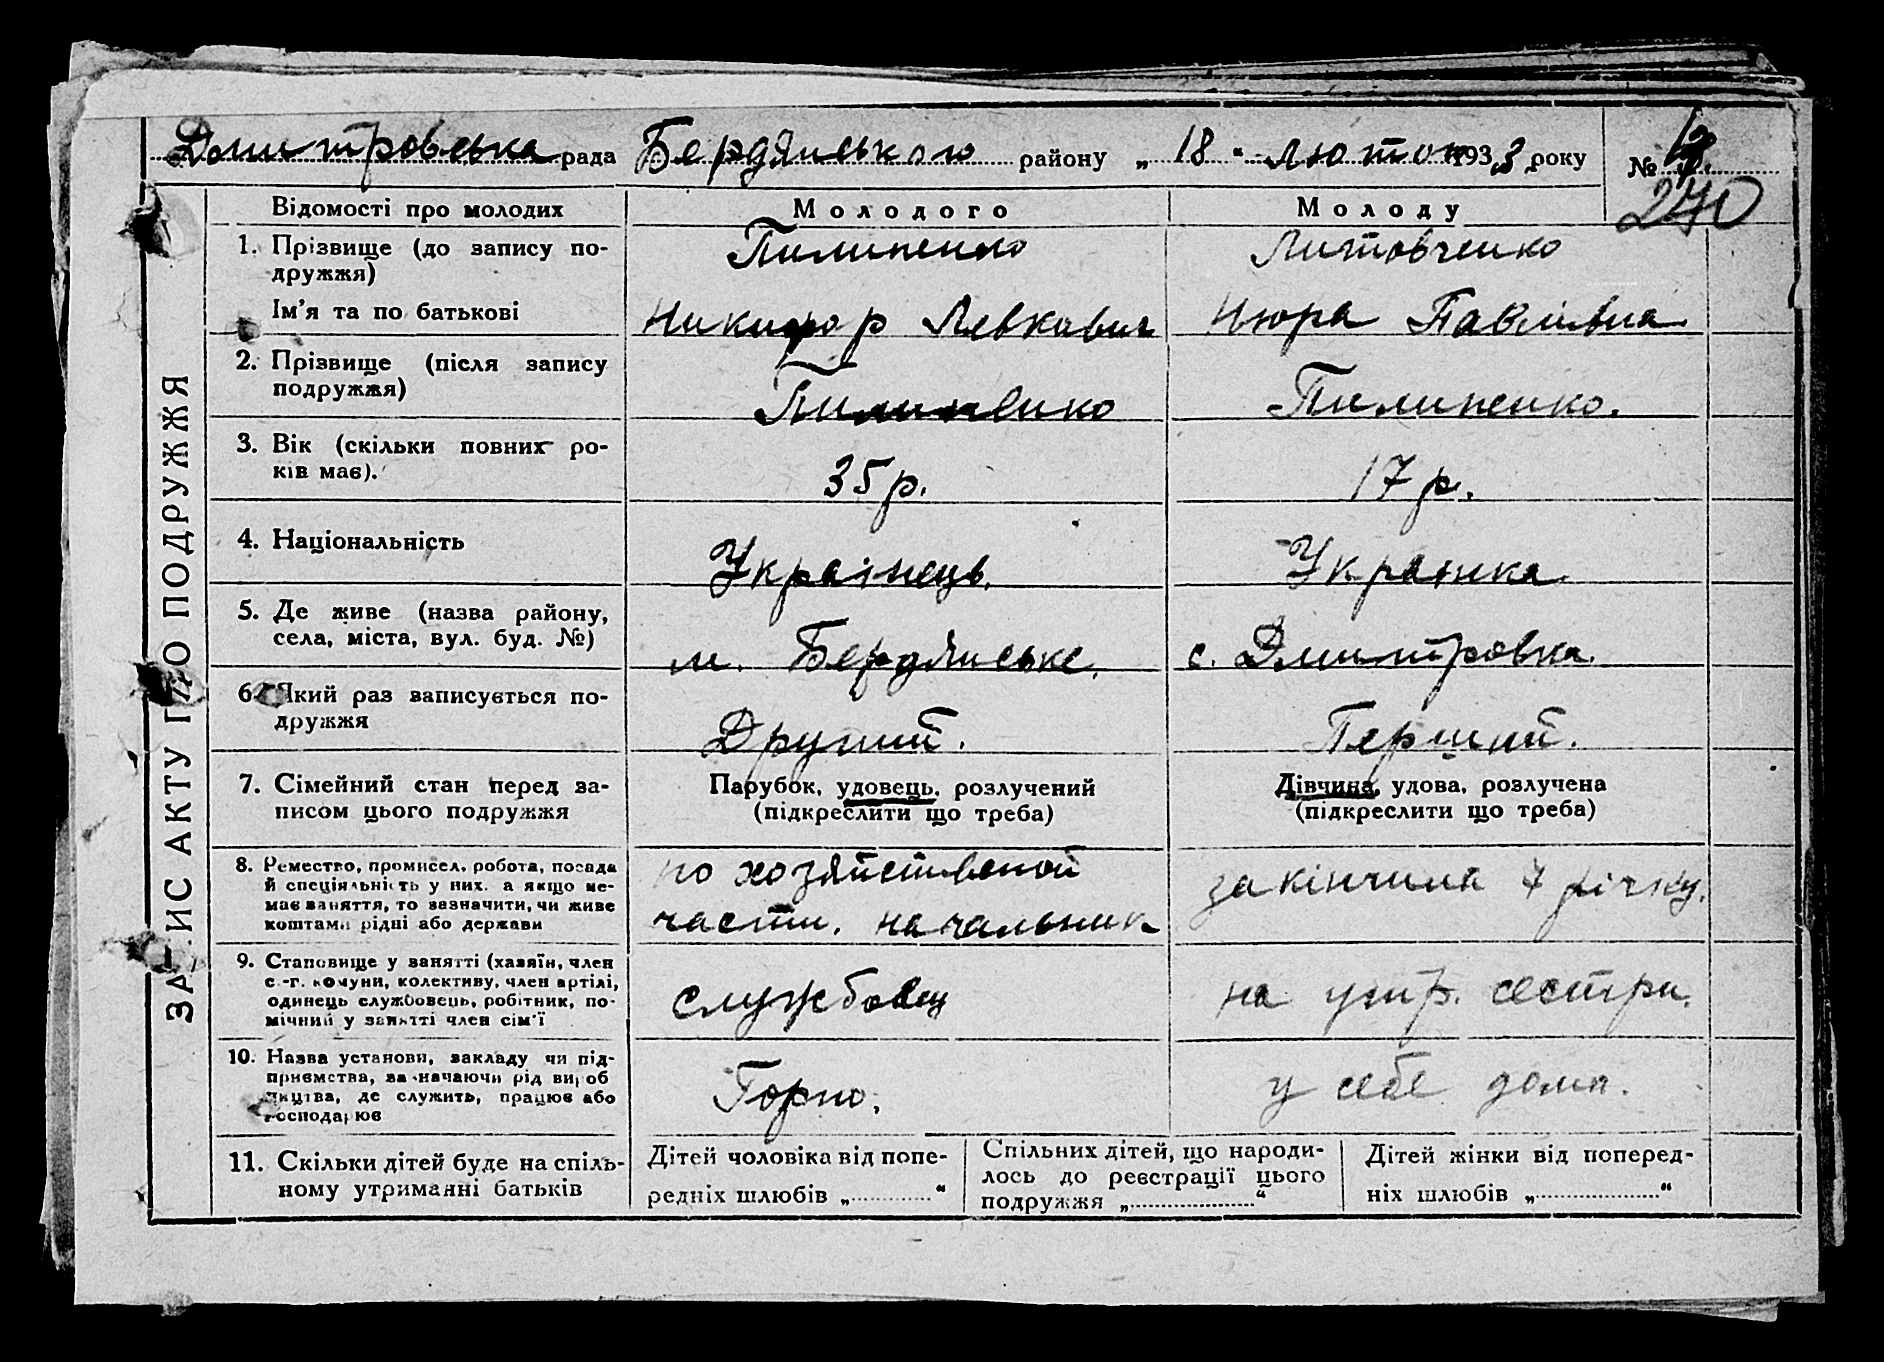 Дмитровська рада Бердянського району „ 18 " лютого 1933 року №
240
ЗАПИС АКТУ ПРО ПОДРУЖЖЯ
Відомості про молодих Молодого Молоду
1. Прізвище (до запису по- Пилипенко Литовченко
дружжя)
Ім'я та по батькові Никифор Левкович Нюра Павлівна
2. Прізвище (після запису
подружжя) Пилипенко Пилипенко.
3. Вік (скільки повних ро-
ків має). 35 р. 17 р.
4. Національність Українець. Українка.
5. Де живе (назва району,
села, міста, вул. буд. №) м. Бердянське. с. Дмитровка.
6. Який раз записується по-
дружжя Другий. Перший.
7. Сімейний стан перед за- Парубок, удовець, розлучений Дівчина, удова, розлучена
писом цього подружжя (підкреслити що треба) (підкреслити що треба)
8. Ремество, промисел, робота, посада по хозяйственой
й спеціяльність у них, а якщо не- закінчила 7 річку.
має заняття, то зазначити, чи живе части. начальник
коштами рідні або держави
9. Становище у занятті (хазяїн, член
с.-г. комуни, колективу, член артілі, службовец на утр. сестри.
одинець службовець, робітник, по-
мічний у занятті член сім'ї
10. Назва установи, закладу чи під-
приємства, зазначаючи рід вироб у себе дома.
ництва, де служить, працює або
господарює
11. Скільки дітей буде на спіль- Дітей чоловіка від попе- Спільних дітей, що народи- Дітей жінки від поперед-
ному утриманні батьків редніх шлюбів „ " лось до реєстрації цього ніх шлюбів „ "
подружжя „ "